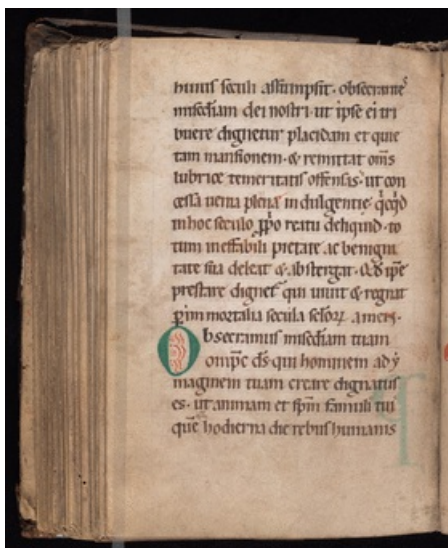 huius seculi assumpsit. obsecram᷒
miscdiam dei nostri. ut ipse ei tri
buere dignetur placidam et quie
tam mansionem. & remittat om̅s
lubrice temeritatis offensas. ut con
cessa uenia plena indulgentie q̇cq̇d
in hoc seculo ꝓpo reatu deliquid. to
tum ineffabili pietate ac benigni
tate sua deleat & abstergat.
prestare dignet qui uiuit & regnat
secula amen.
Obsecramus miscdiam tuam
omp̅e d̅s qui hominem ad y
maginem tuam creare dignatus
es. ut animam et sp̅m famuli tui
que̅ hodierna die rebus humanis